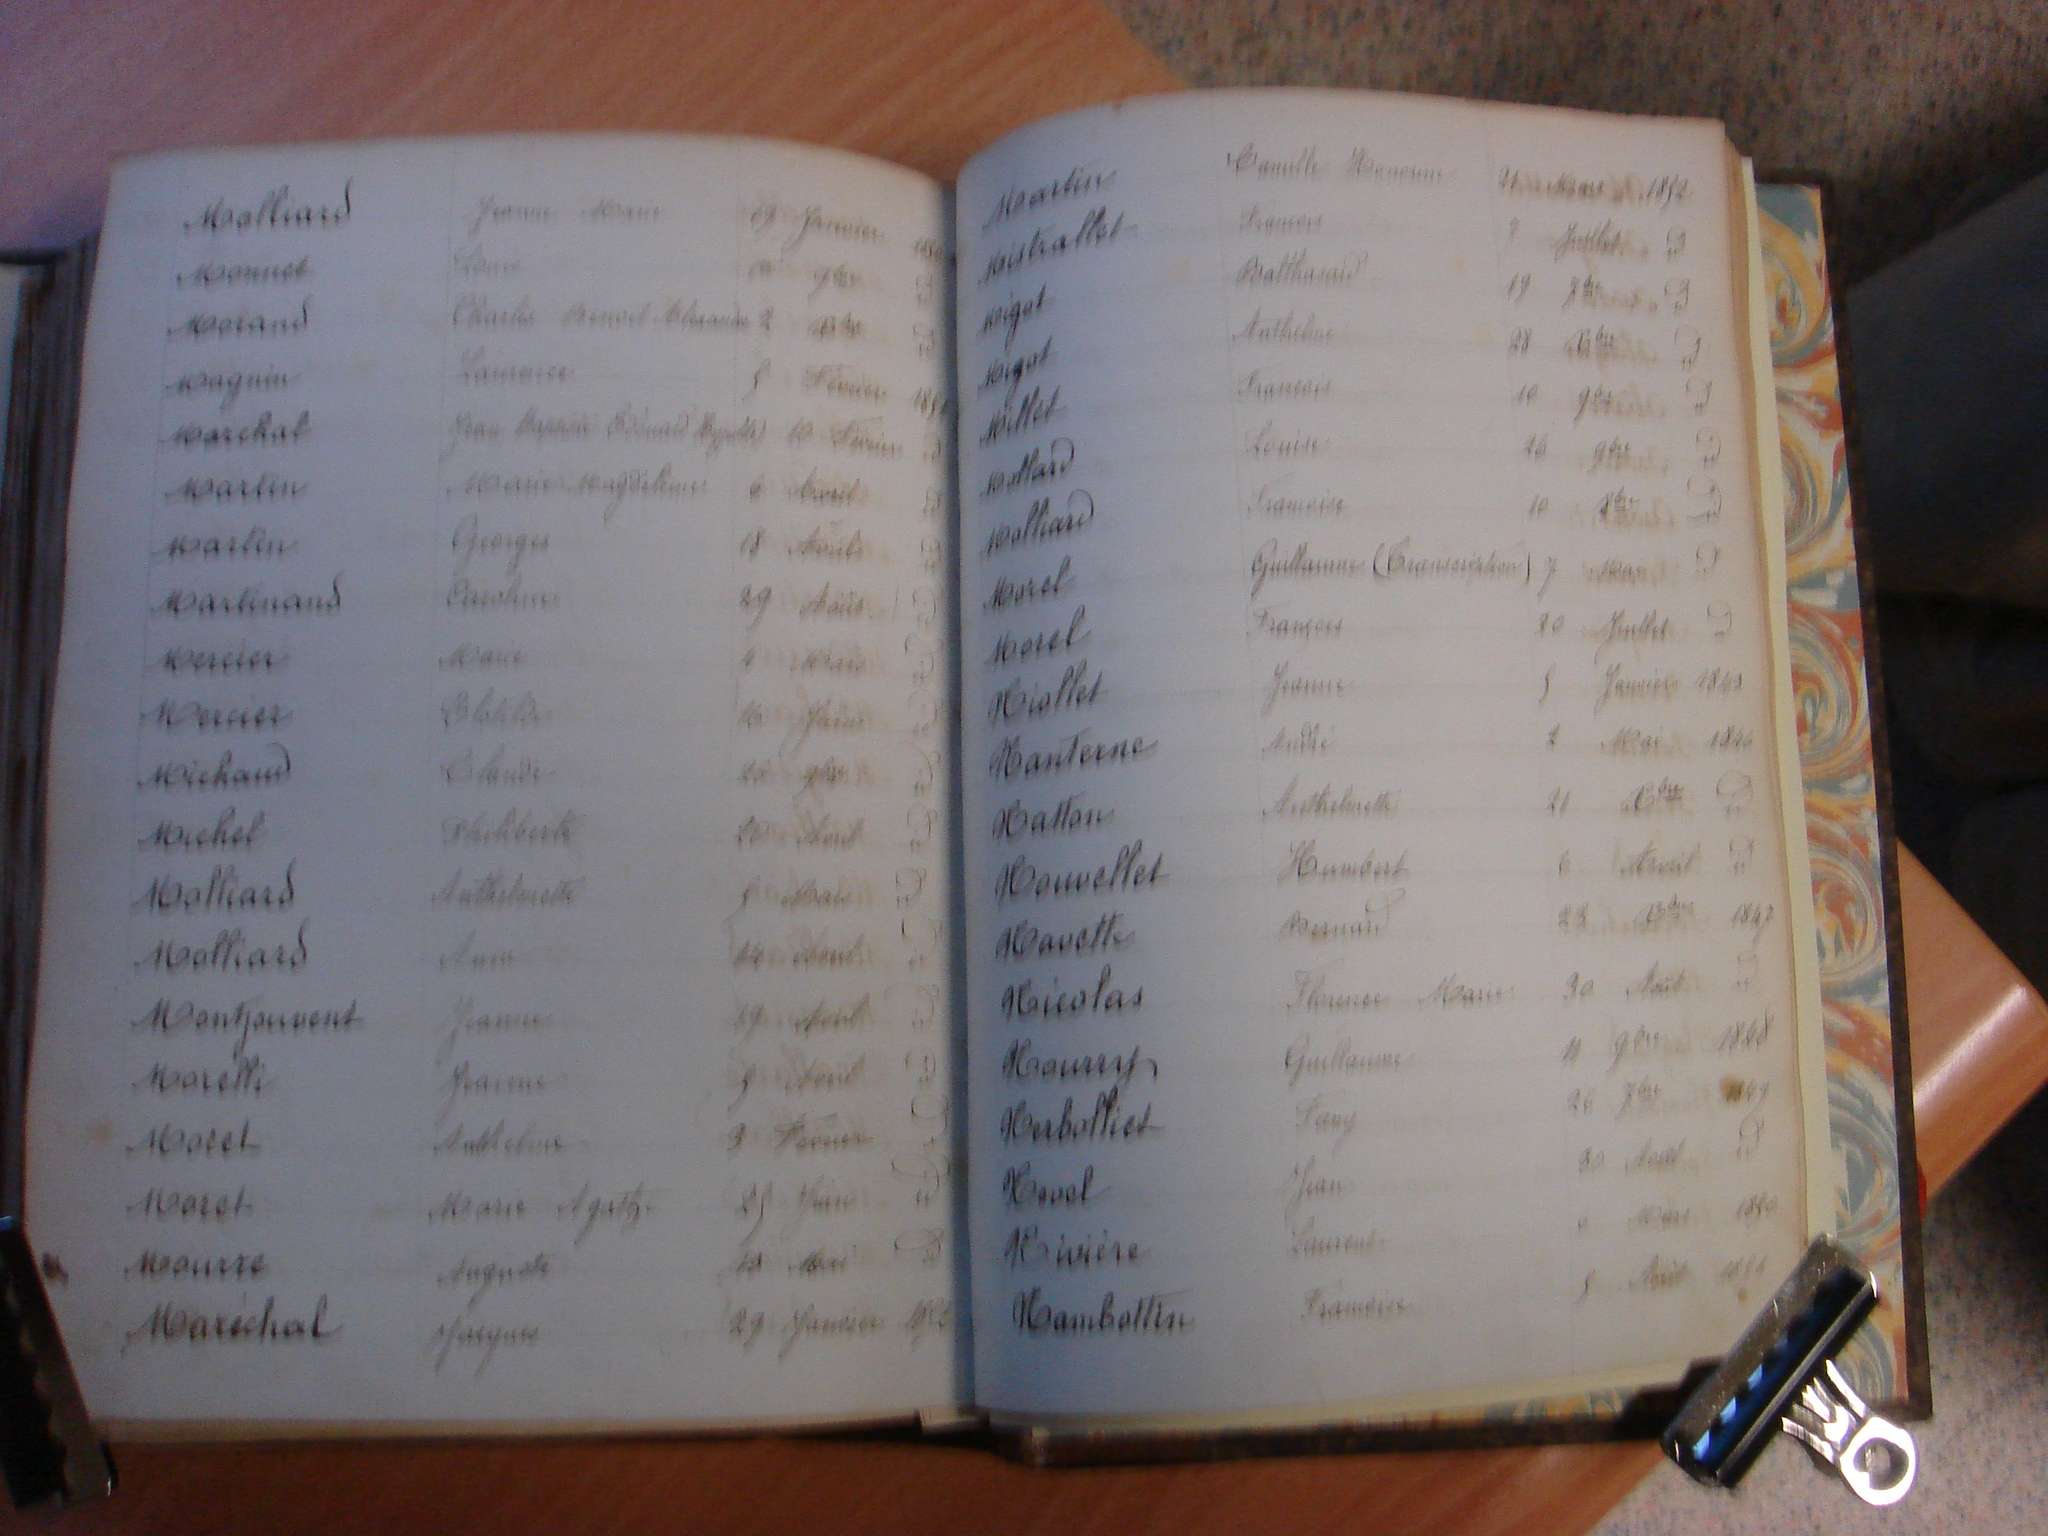 Molliard Jeanne Marie 19 Janvier
Monnet Louis 9bre
Morand Charles Benoit 2 Xbre
Magnin Laurence 5 Février 1851
Marechal Jean Baptiste Edouard 10 Février d
Martin Marie Magdeleine 6 Avril d
Martin Georges 18 Août d
Martinand Caroline 29 Août d
Mercier Marie 4 Mars d
Mercier Clotilde 16 Juin d
Michaud Claude 22 9bre d
Michel Philiberte 20 Aout d
Molliard Anthelmette 5 Mars d
Molliard Anne 14 Aout d
Montjouvent Jeanne 19 Avril d
Morelli Jeanne 5 Avril d
Moret Anthelme 3 Février d
Moret Marie Agathe 25 Juin d
Mourre Auguste 10 Mai d
Maréchal Jacques 29 Janvier 1852
Martin Camille Honorine 21 Mars 1852
Mistrallet François 7 Juillet d
Migot Balthazard 19 7bre d
Migot Anthelme 28 Xbre d
Millet François 10 9bre d
Mollard Louise 26 9bre d
Molliard Françoise 10 8bre d
Morel Guillaume (Transcription) 7 Mars d
Morel François 20 Juillet d
Niollet Jeanne 5 Janvier 1843
Nanterne André 2 Mai 1846
Natton Anthelmette 21 Xbre d
Nouvellet Humbert 6 Avril d
Navette Bernard 22 Xbre 1847
Nicolas Florence Marie 30 Août d
Nourry Guillaume 11 9bre 1848
Nerbolliet Fany 26 7bre 1849
Nevol Jean 30 Aout d
Nivière Laurent Mars 1850
Nambottin Françoise 5 Août 1851